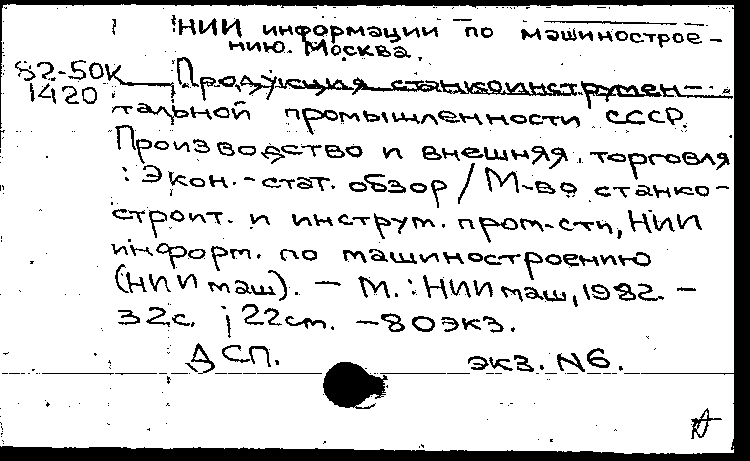 НИИ информации по машинострое-
нию. Москва.
82-50К
1420
Продукция станкоинструмен-
тальной промышленности СССР.
Производство и внешняя торговля
: Экон.-стат. обзор / М-во станко-
строит. и инструм. пром-сти, НИИ
информ. по машиностроению
(НИИмаш). - М. : НИИмаш, 1982. -
32с. ; 22см. - 80экз.
ДСП. экз. N6.